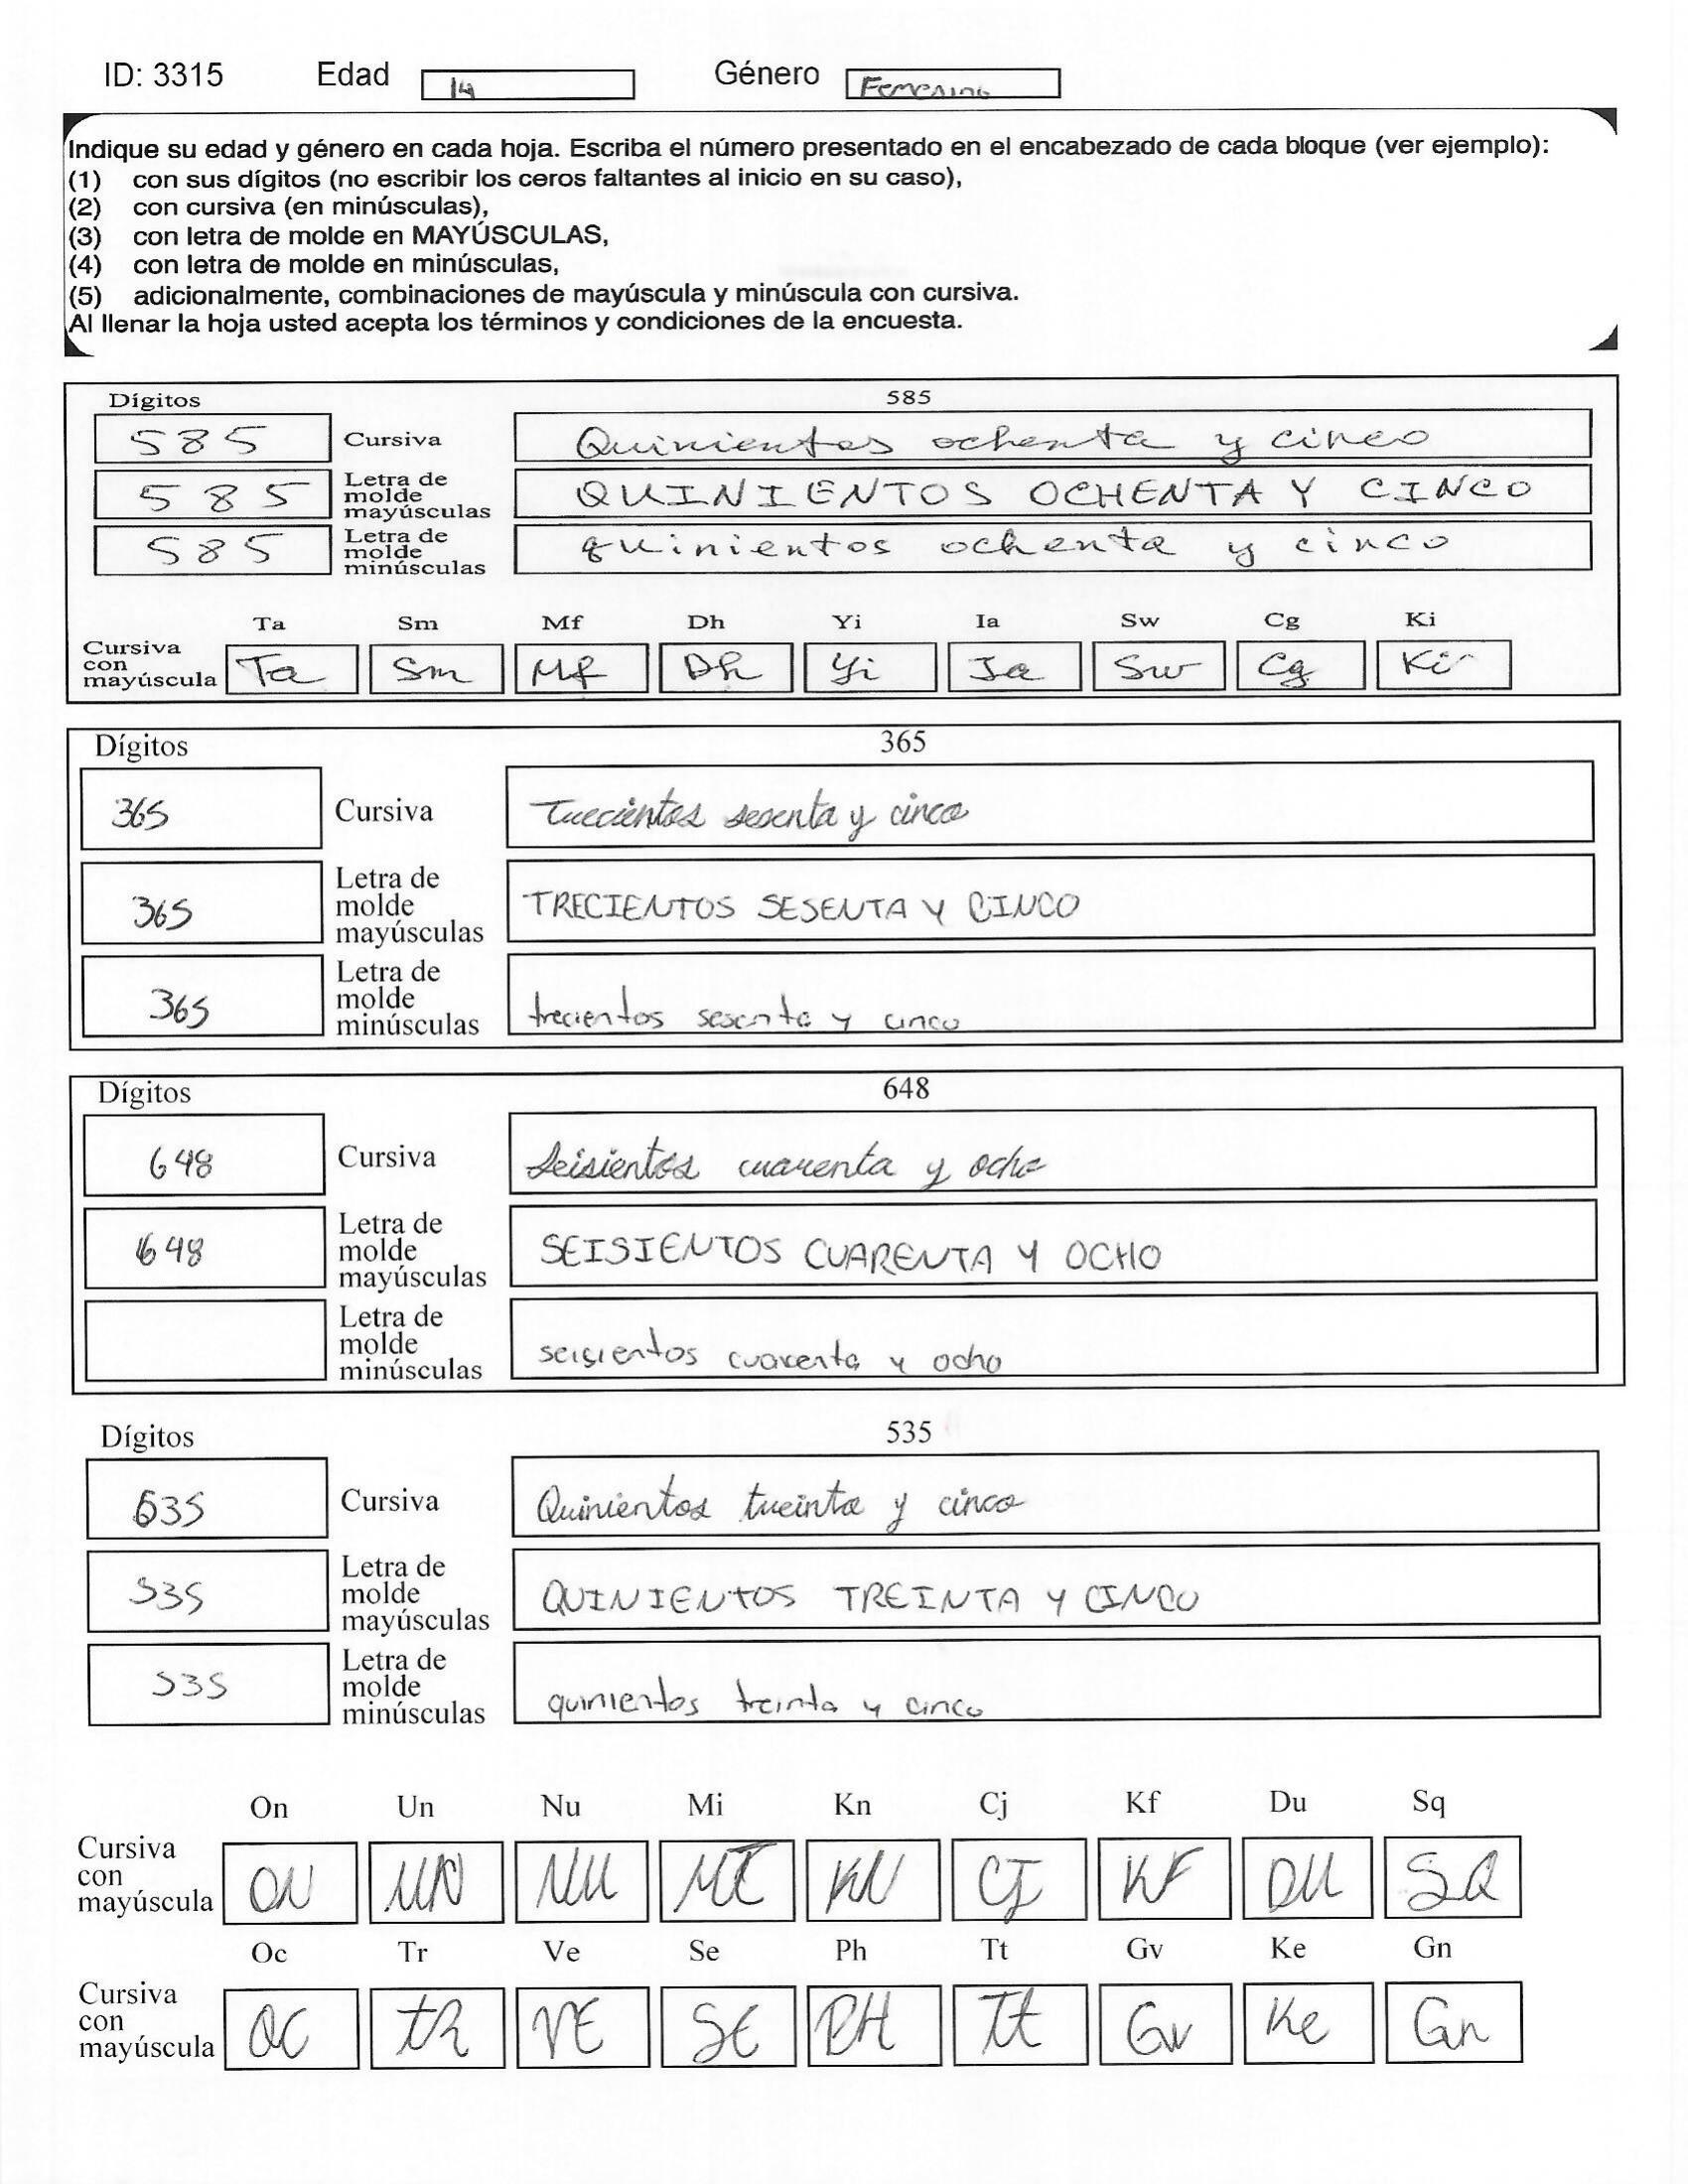 ID: 3315 Edad 14 Género Femenino
Indique su edad y género en cada hoja. Escriba el número presentado en el encabezado de cada bloque (ver ejemplo):
(1) con sus dígitos (no escribir los ceros faltantes al inicio en su caso),
(2) con cursiva (en minúsculas),
(3) con letra de molde en MAYÚSCULAS,
(4) con letra de molde en minúsculas,
(5) adicionalmente, combinaciones de mayúscula y minúscula con cursiva.
Al llenar la hoja usted acepta los términos y condiciones de la encuesta.
Dígitos 585
585 Cursiva Quinientos ochenta y cinco
585 Letra de molde mayúsculas QUINIENTOS OCHENTA Y CINCO
585 Letra de molde minúsculas quinientos ochenta y cinco
Ta Sm Mf Dh Yi Ia Sw Cg Ki
Cursiva con mayúscula Ta Sm Mf Dh Yi Ia Sw Cg Ki
Dígitos 365
365 Cursiva Trecientos sesenta y cinco
365 Letra de molde mayúsculas TRECIENTOS SESENTA Y CINCO
365 Letra de molde minúsculas trecientos sesenta y cinco
Dígitos 648
648 Cursiva Seisientos cuarenta y ocho
648 Letra de molde mayúsculas SEISIENTOS CUARENTA Y OCHO
Letra de molde minúsculas seisientos cuarenta y ocho
Dígitos 535
535 Cursiva Quinientos treinta y cinco
535 Letra de molde mayúsculas QUINIENTOS TREINTA Y CINCO
535 Letra de molde minúsculas quinientos treinta y cinco
On Un Nu Mi Kn Cj Kf Du Sq
Cursiva con mayúscula ON UN NU MI KN CJ KF DU SQ
Oc Tr Ve Se Ph Tt Gv Ke Gn
Cursiva con mayúscula OC tR VE SE PH Tt Gv Ke Gn